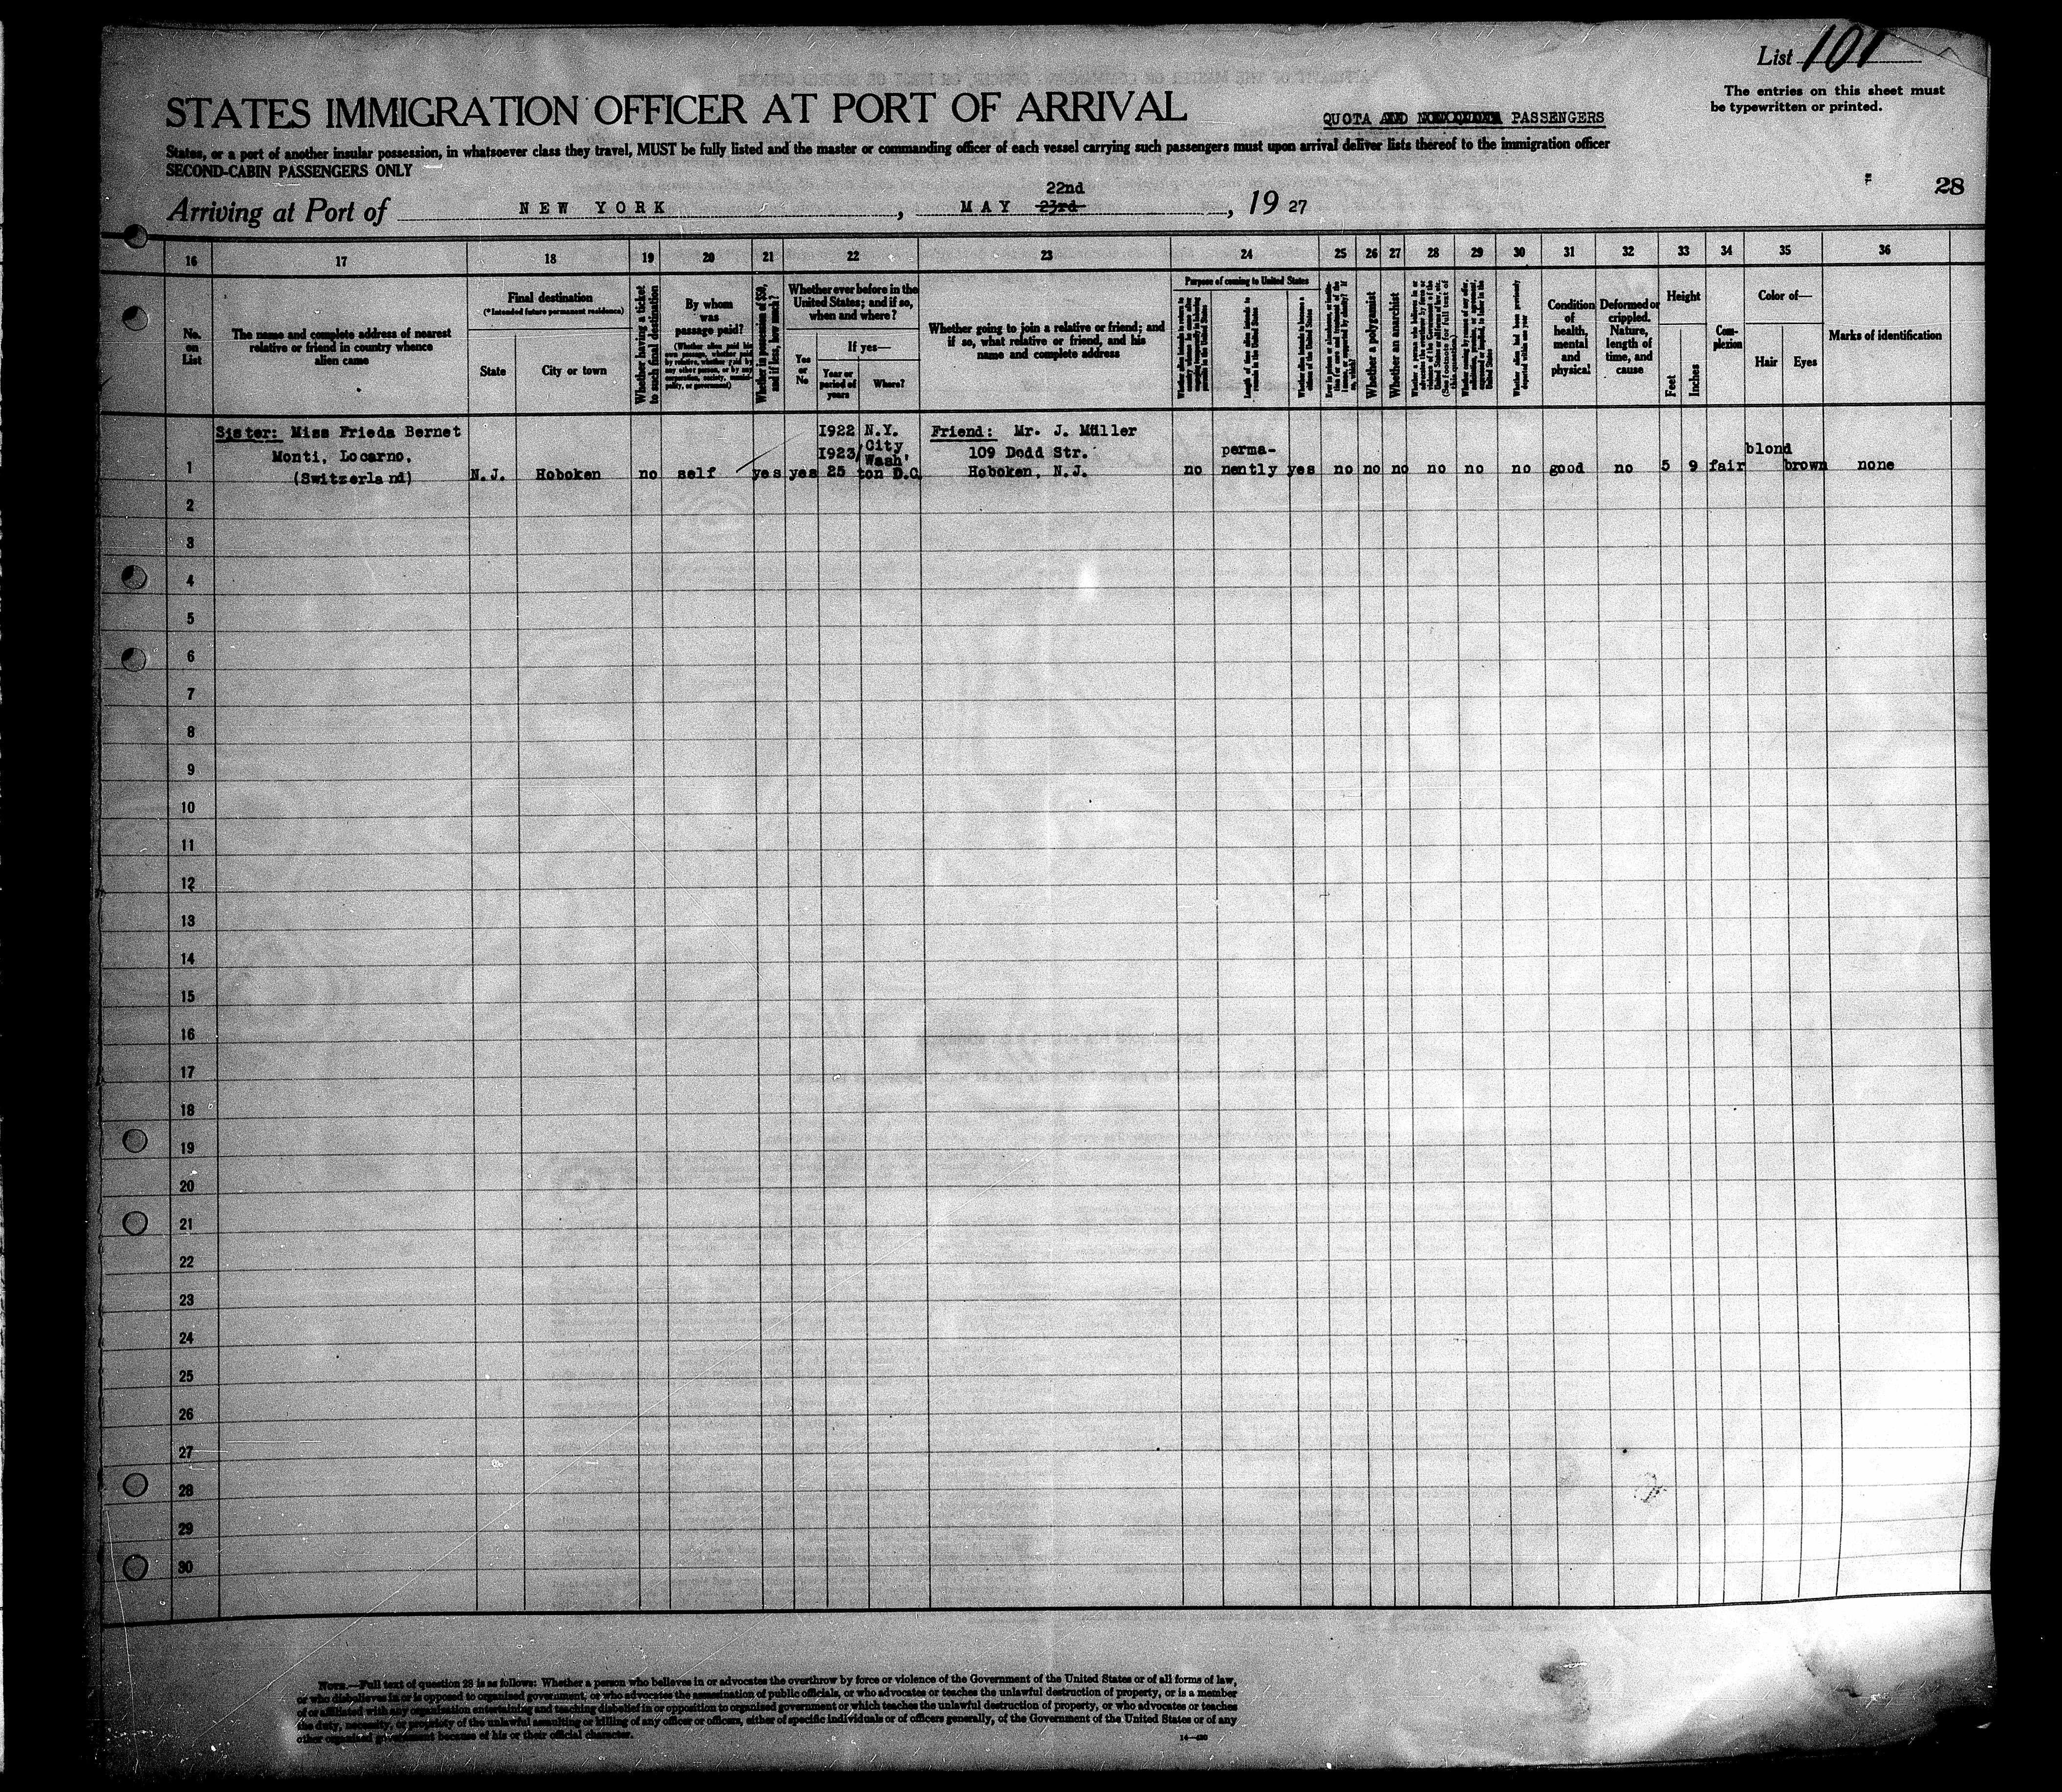 List 101
The entries on this sheet must
be typewritten or printed.
STATES IMMIGRATION OFFICER AT PORT OF ARRIVAL
QUOTA PASSENGERS
States, or a port of another insular possession, in whatsoever class they travel, MUST be fully listed and the master or commanding officer of each vessel carrying such passengers must upon arrival deliver lists thereof to the immigration officer
SECOND-CABIN PASSENGERS ONLY
28
22nd
Arriving at Port of NEW YORK, MAY 23rd, 19 27
16 17 18 19 20 21 22 23 24 25 26 27 28 29 30 31 32 33 34 35 36
No.
on
List
The name and complete address of nearest
relative or friend in country whence
alien came
Final destination
(*Intended future permanent residence)
State
City or town
Whether having a ticket
to such final destination
By whom
was
passage paid?
(Whether alien paid his
own passage, whether paid by relative, whether paid by
any other person, or by any
corporation, society, munici-
pality, or government)
Whether in possession of $50,
and if less, how much?
Whether ever before in the
United States; and if so,
when and where?
Yes
or
No
If yes—
Year or
period of
years
Where?
Whether going to join a relative or friend; and
if so, what relative or friend, and his
name and complete address
Purpose of coming to United States
Length of time alien intends to
remain in the United States
Whether alien intends to become a
citizen of the United States
Whether a polygamist
Whether an anarchist
Whether alien had been previously
deported within one year
Condition
of
health,
mental
and
physical
Deformed or
crippled.
Nature,
length of
time, and
cause
Height
Feet
Inches
Com-
plexion
Color of—
Hair
Eyes
Marks of identification
1
Sister: Miss Frieda Bernet
Monti, Locarno,
(Switzerland)
N.J.
Hoboken
no
self
yes
yes
1922
1923/
25
N.Y.
City
Wash'
ton D.C.
Friend: Mr. J. Müller
109 Dodd Str.
Hoboken, N.J.
no
perma-
nently
yes
no
no
no
no
no
no
good
no
5
9
fair
blond
brown
none
2
3
4
5
6
7
8
9
10
11
12
13
14
15
16
17
18
19
20
21
22
23
24
25
26
27
28
29
30
NOTE.—Full text of question 28 is as follows: Whether a person who believes in or advocates the overthrow by force or violence of the Government of the United States or of all forms of law,
or who disbelieves in or is opposed to organized government, or who advocates the assassination of public officials, or who advocates or teaches the unlawful destruction of property, or is a member
of or affiliated with any organization entertaining and teaching disbelief in or opposition to organized government or which teaches the unlawful destruction of property, or who advocates or teaches
the duty, necessity, or propriety of the unlawful assaulting or killing of any officer or officers, either of specific individuals or of officers generally, of the Government of the United States or of any
other organized government because of his or their official character.